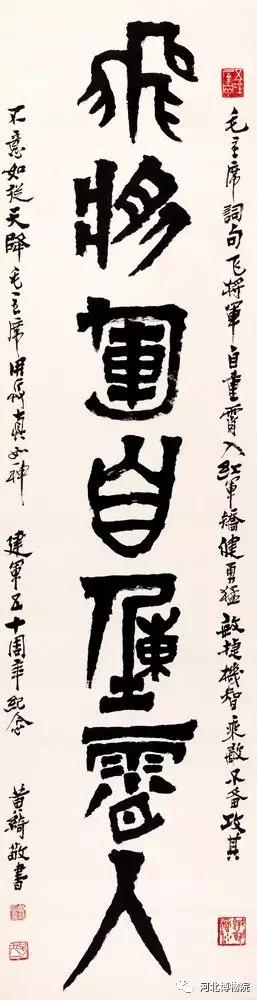 飛將軍自重霄入
毛主席詞句飞將軍自重霄入紅軍矯健勇猛敏捷機智乘敵不备攻其
不意如從天降毛主席用兵真如神 建軍五十周年紀念 黄綺敬書
河北博物院